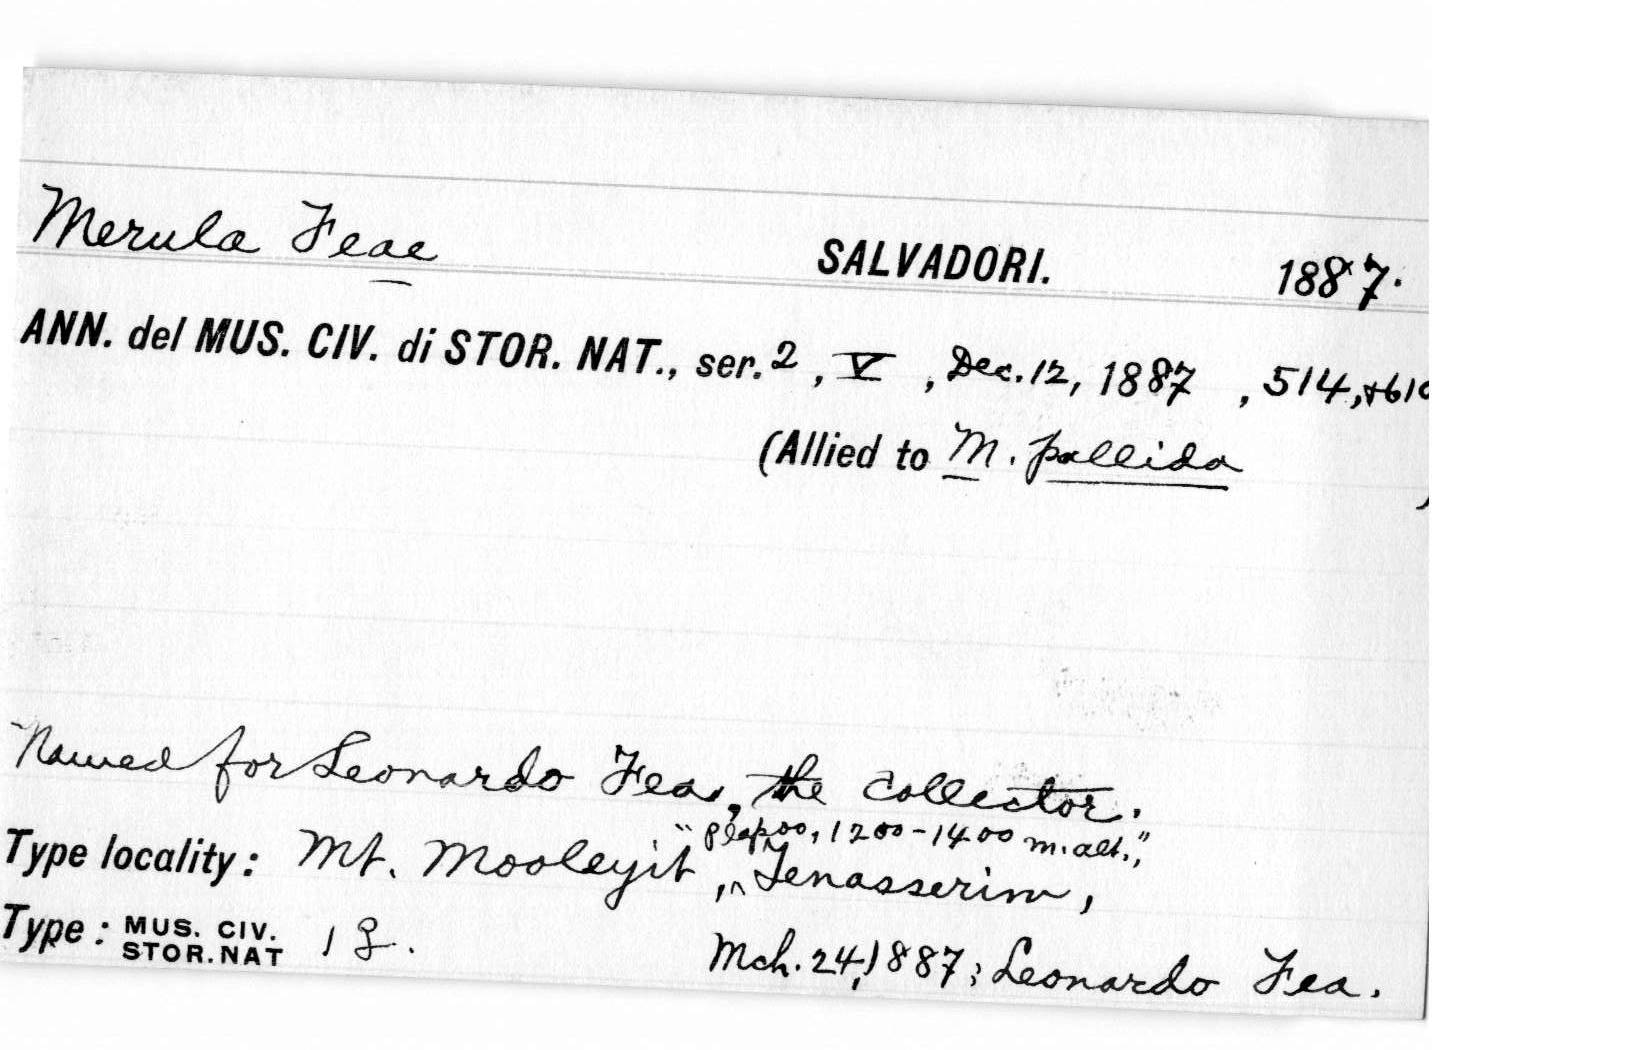 Merula Feae SALVADORI. 1887.
ANN. del MUS. CIV. di STOR. NAT., ser. 2, V, Dec. 12, 1887, 514, +
(Allied to M. pallida )
Named for Leonardo Fea, the collector.
"Plapoo, 1200-1400 m. alt.,"
Type locality: Mt. Mooleyit, ^ Tenasserim,
Type: MUS. CIV. STOR. NAT 1 ♀. Mch. 24, 1887; Leonardo Fea.